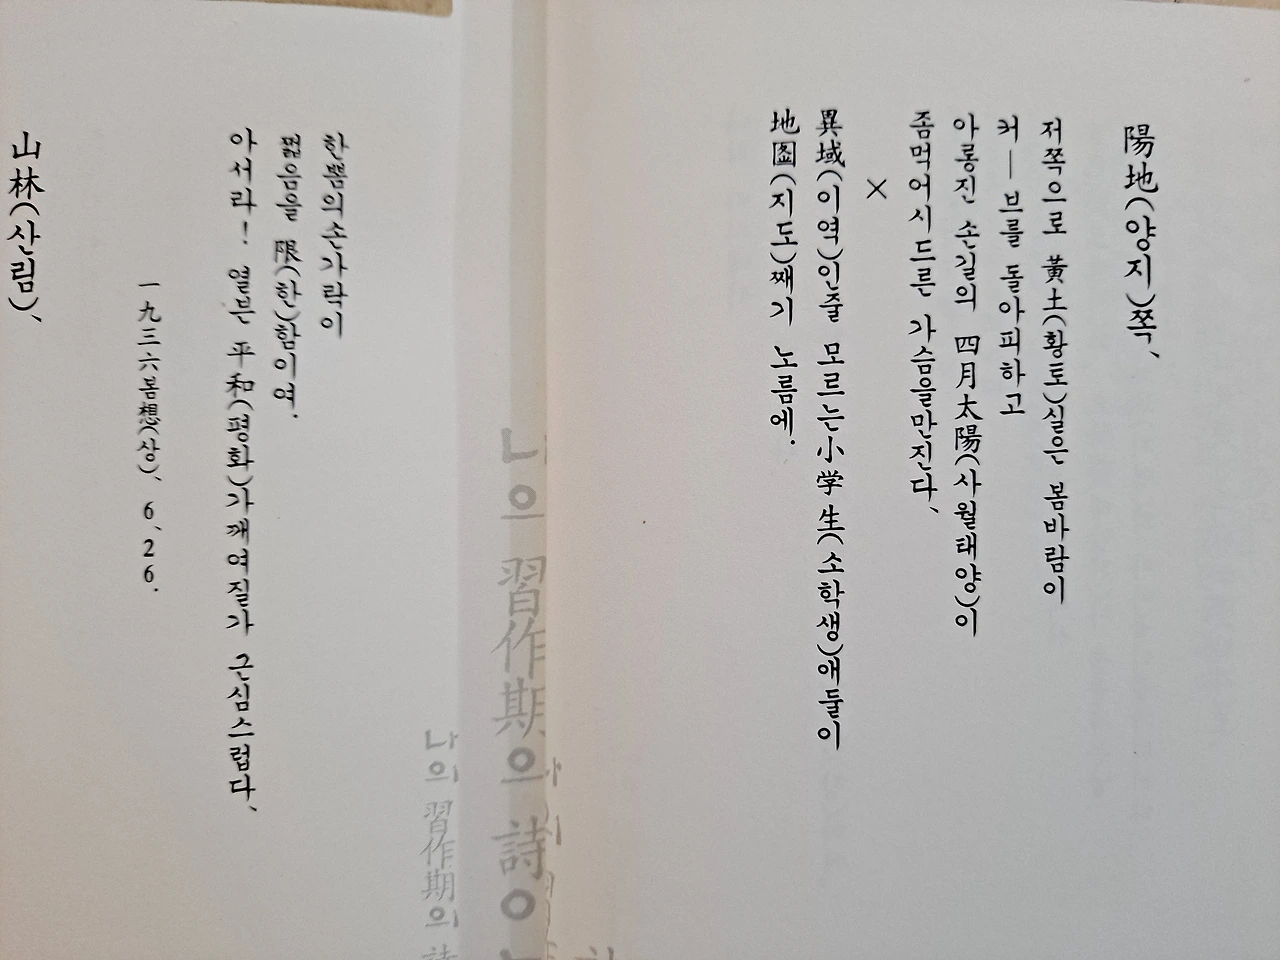 陽地(양지)쪽、
저쪽으로 黃土(황토)실은 봄바람이
커ㅡ브를 돌아피하고
아롱진 손길의 四月太陽(사월태양)이
좀먹어시드른 가슴을만진다、
×
異域(이역)인줄 모르는小学生(소학생)애들이
地圖(지도)째기 노름에.
한뽐의손가락이
젊음을 限(한)함이여.
아서라! 열븐 平和(평화)가깨여질가 근심스럽다、
一九三六봄想(상)、6、26.
나의 習作期의 詩
나의 習作期의
山林(산림)、